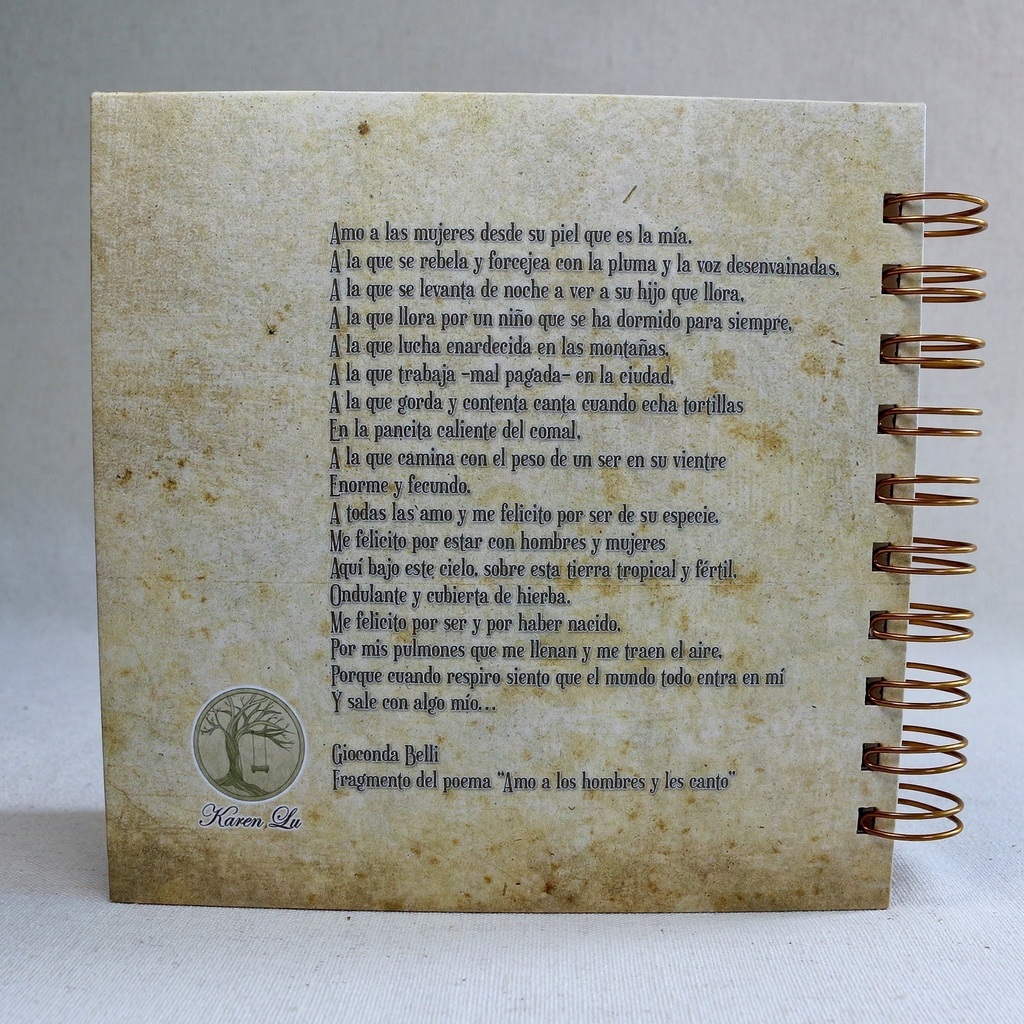 Amo a las mujeres desde su piel que es la mía.
A la que se rebela y forcejea con la pluma y la voz desenvainadas.
A la que se levanta de noche a ver a su hijo que llora.
A la que llora por un niño que se ha dormido para siempre.
A la que lucha enardecida en las montañas.
A la que trabaja -mal pagada- en la ciudad.
A la que gorda y contenta canta cuando echa tortillas
En la pancita caliente del comal.
A la que camina con el peso de un ser en su vientre
Enorme y fecundo.
A todas las amo y me felicito por ser de su especie.
Me felicito por estar con hombres y mujeres
Aquí bajo este cielo, sobre esta tierra tropical y fértil.
Ondulante y cubierta de hierba.
Me felicito por ser y por haber nacido.
Por mis pulmones que me llenan y me traen el aire.
Porque cuando respiro siento que el mundo todo entra en mí
Y sale con algo mío...
Gioconda Belli
Fragmento del poema "Amo a los hombres y les canto"
Karen Lu